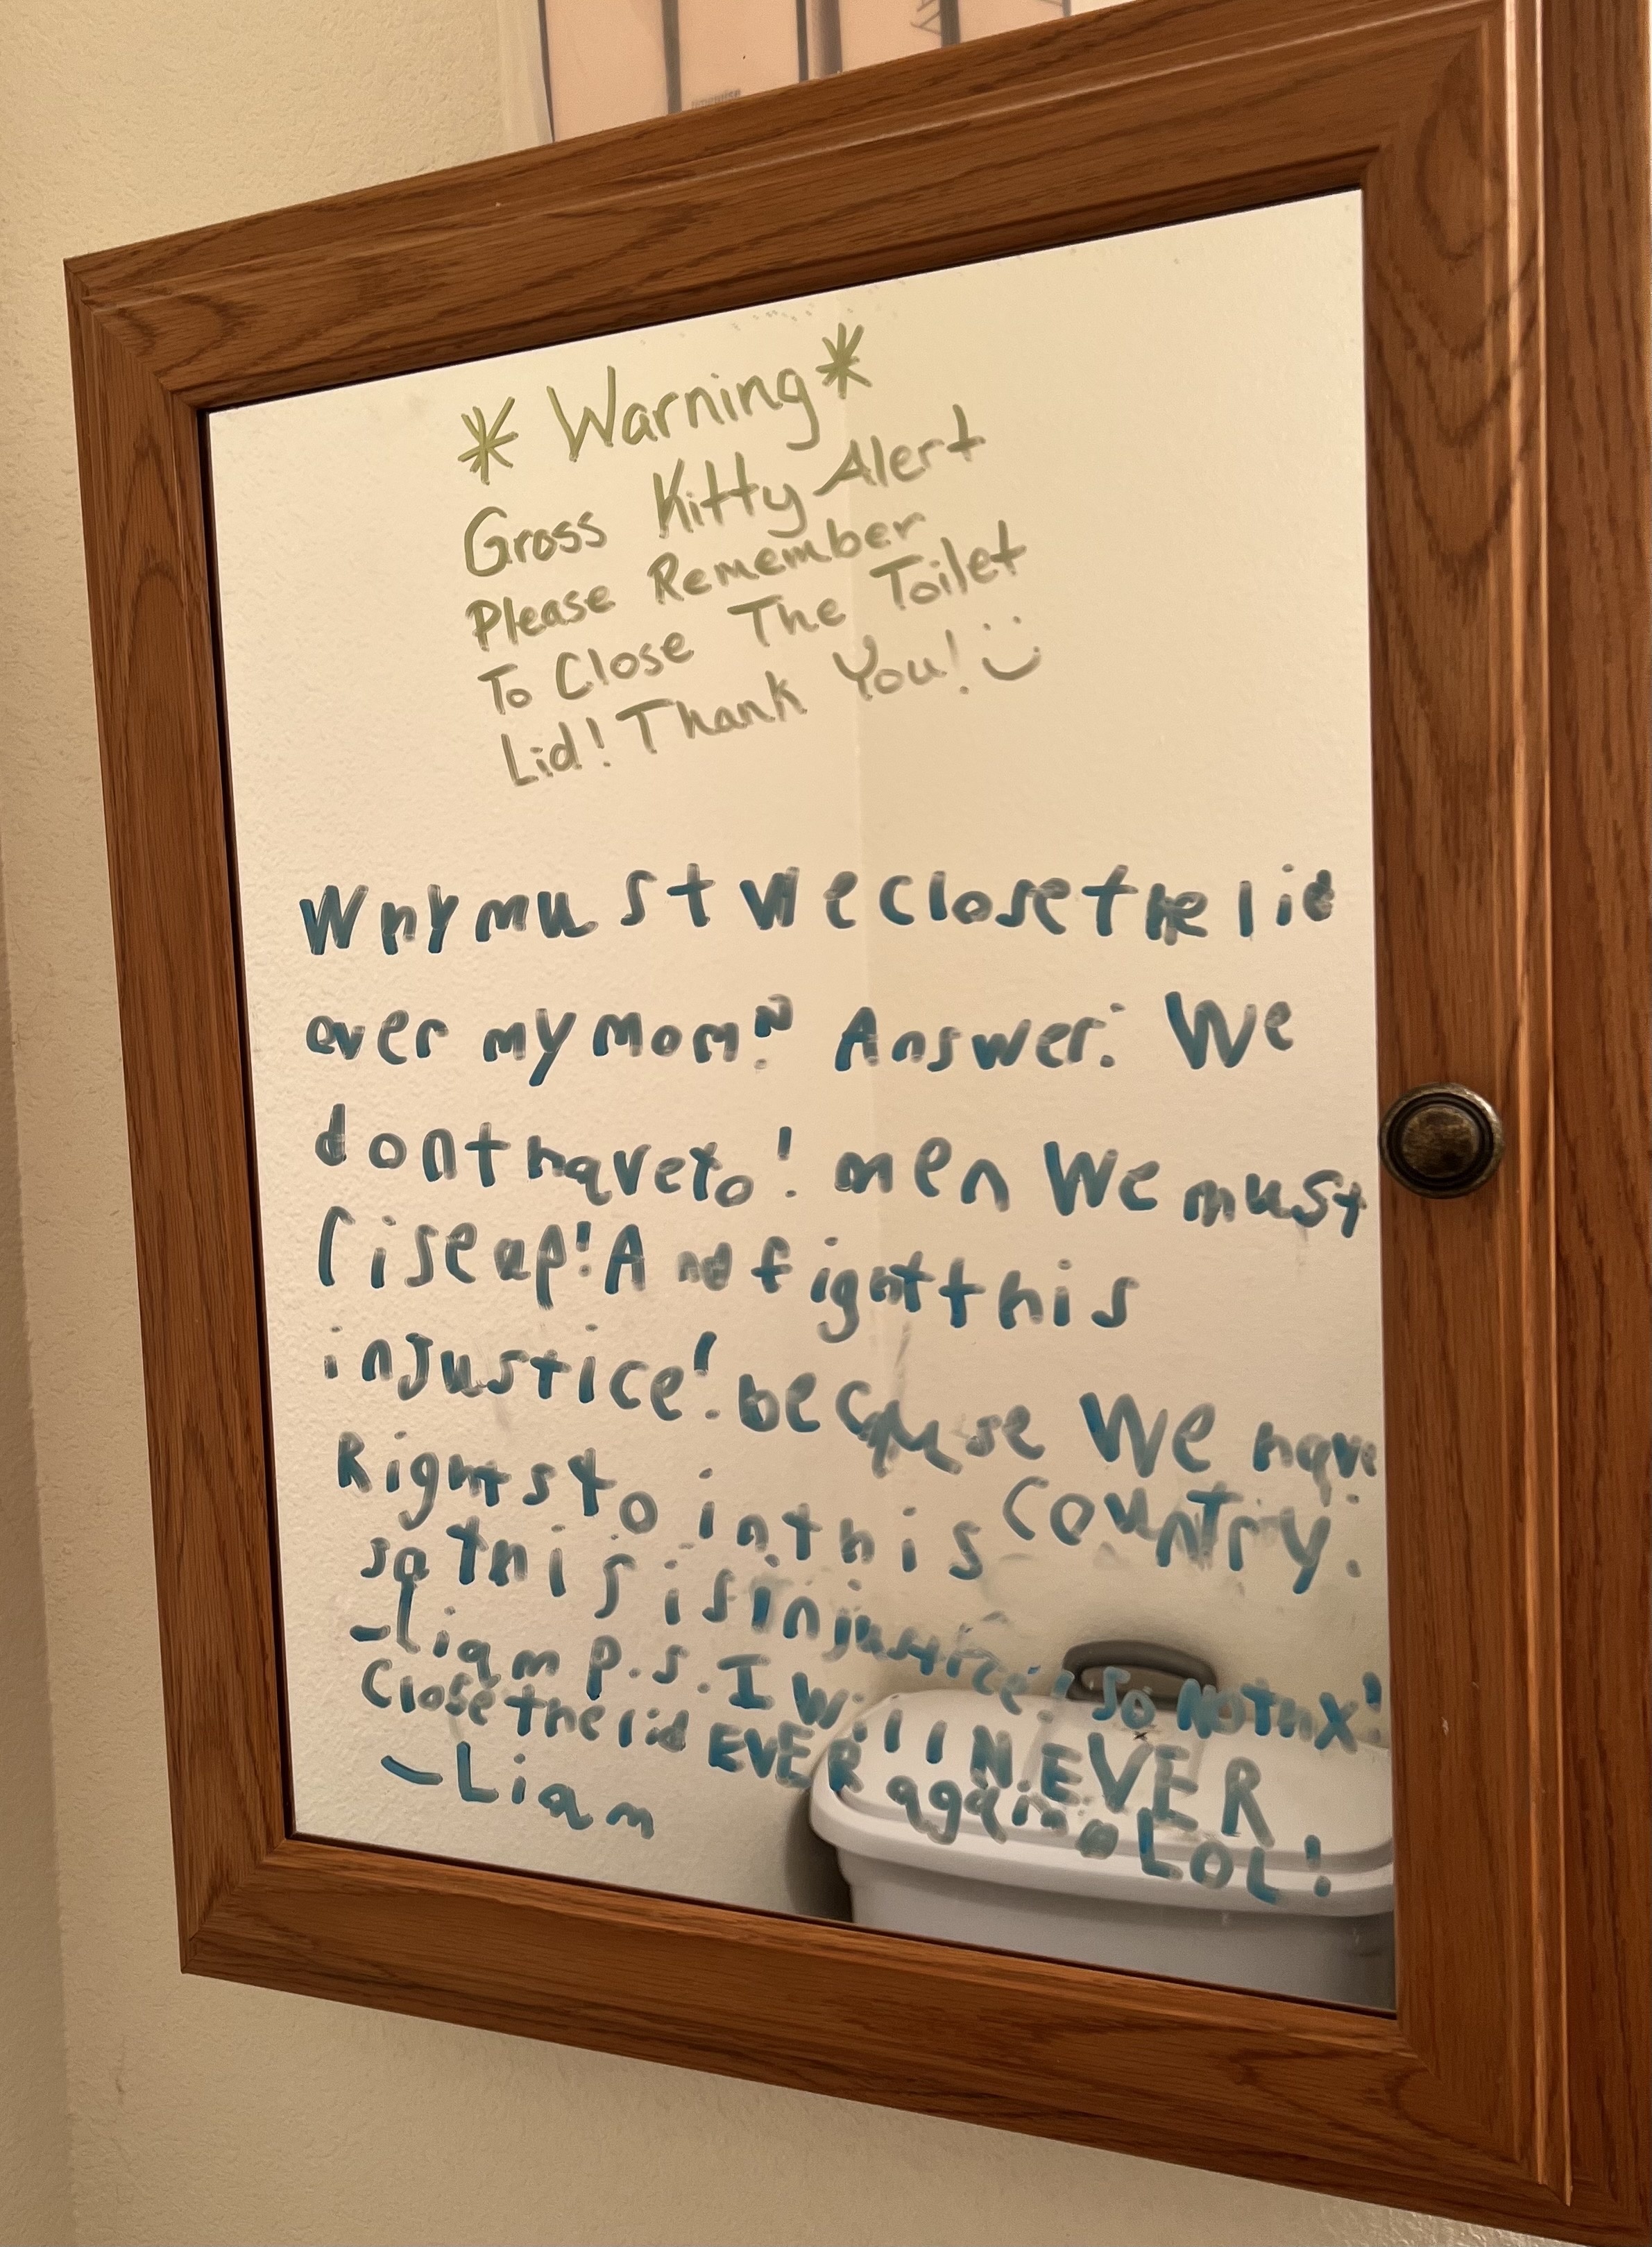 * Warning *
Gross Kitty Alert
Please Remember
To Close The Toilet
Lid! Thank You! :)
Why must we close the lid
over my mom? Answer: We
dont have to! men We must
rise up! And fight this
injustice! because We have
Rights to in this country.
so this is injustice! So NO thx!
-Liam p.s. I will NEVER
Close the lid EVER again LOL!
-Liam